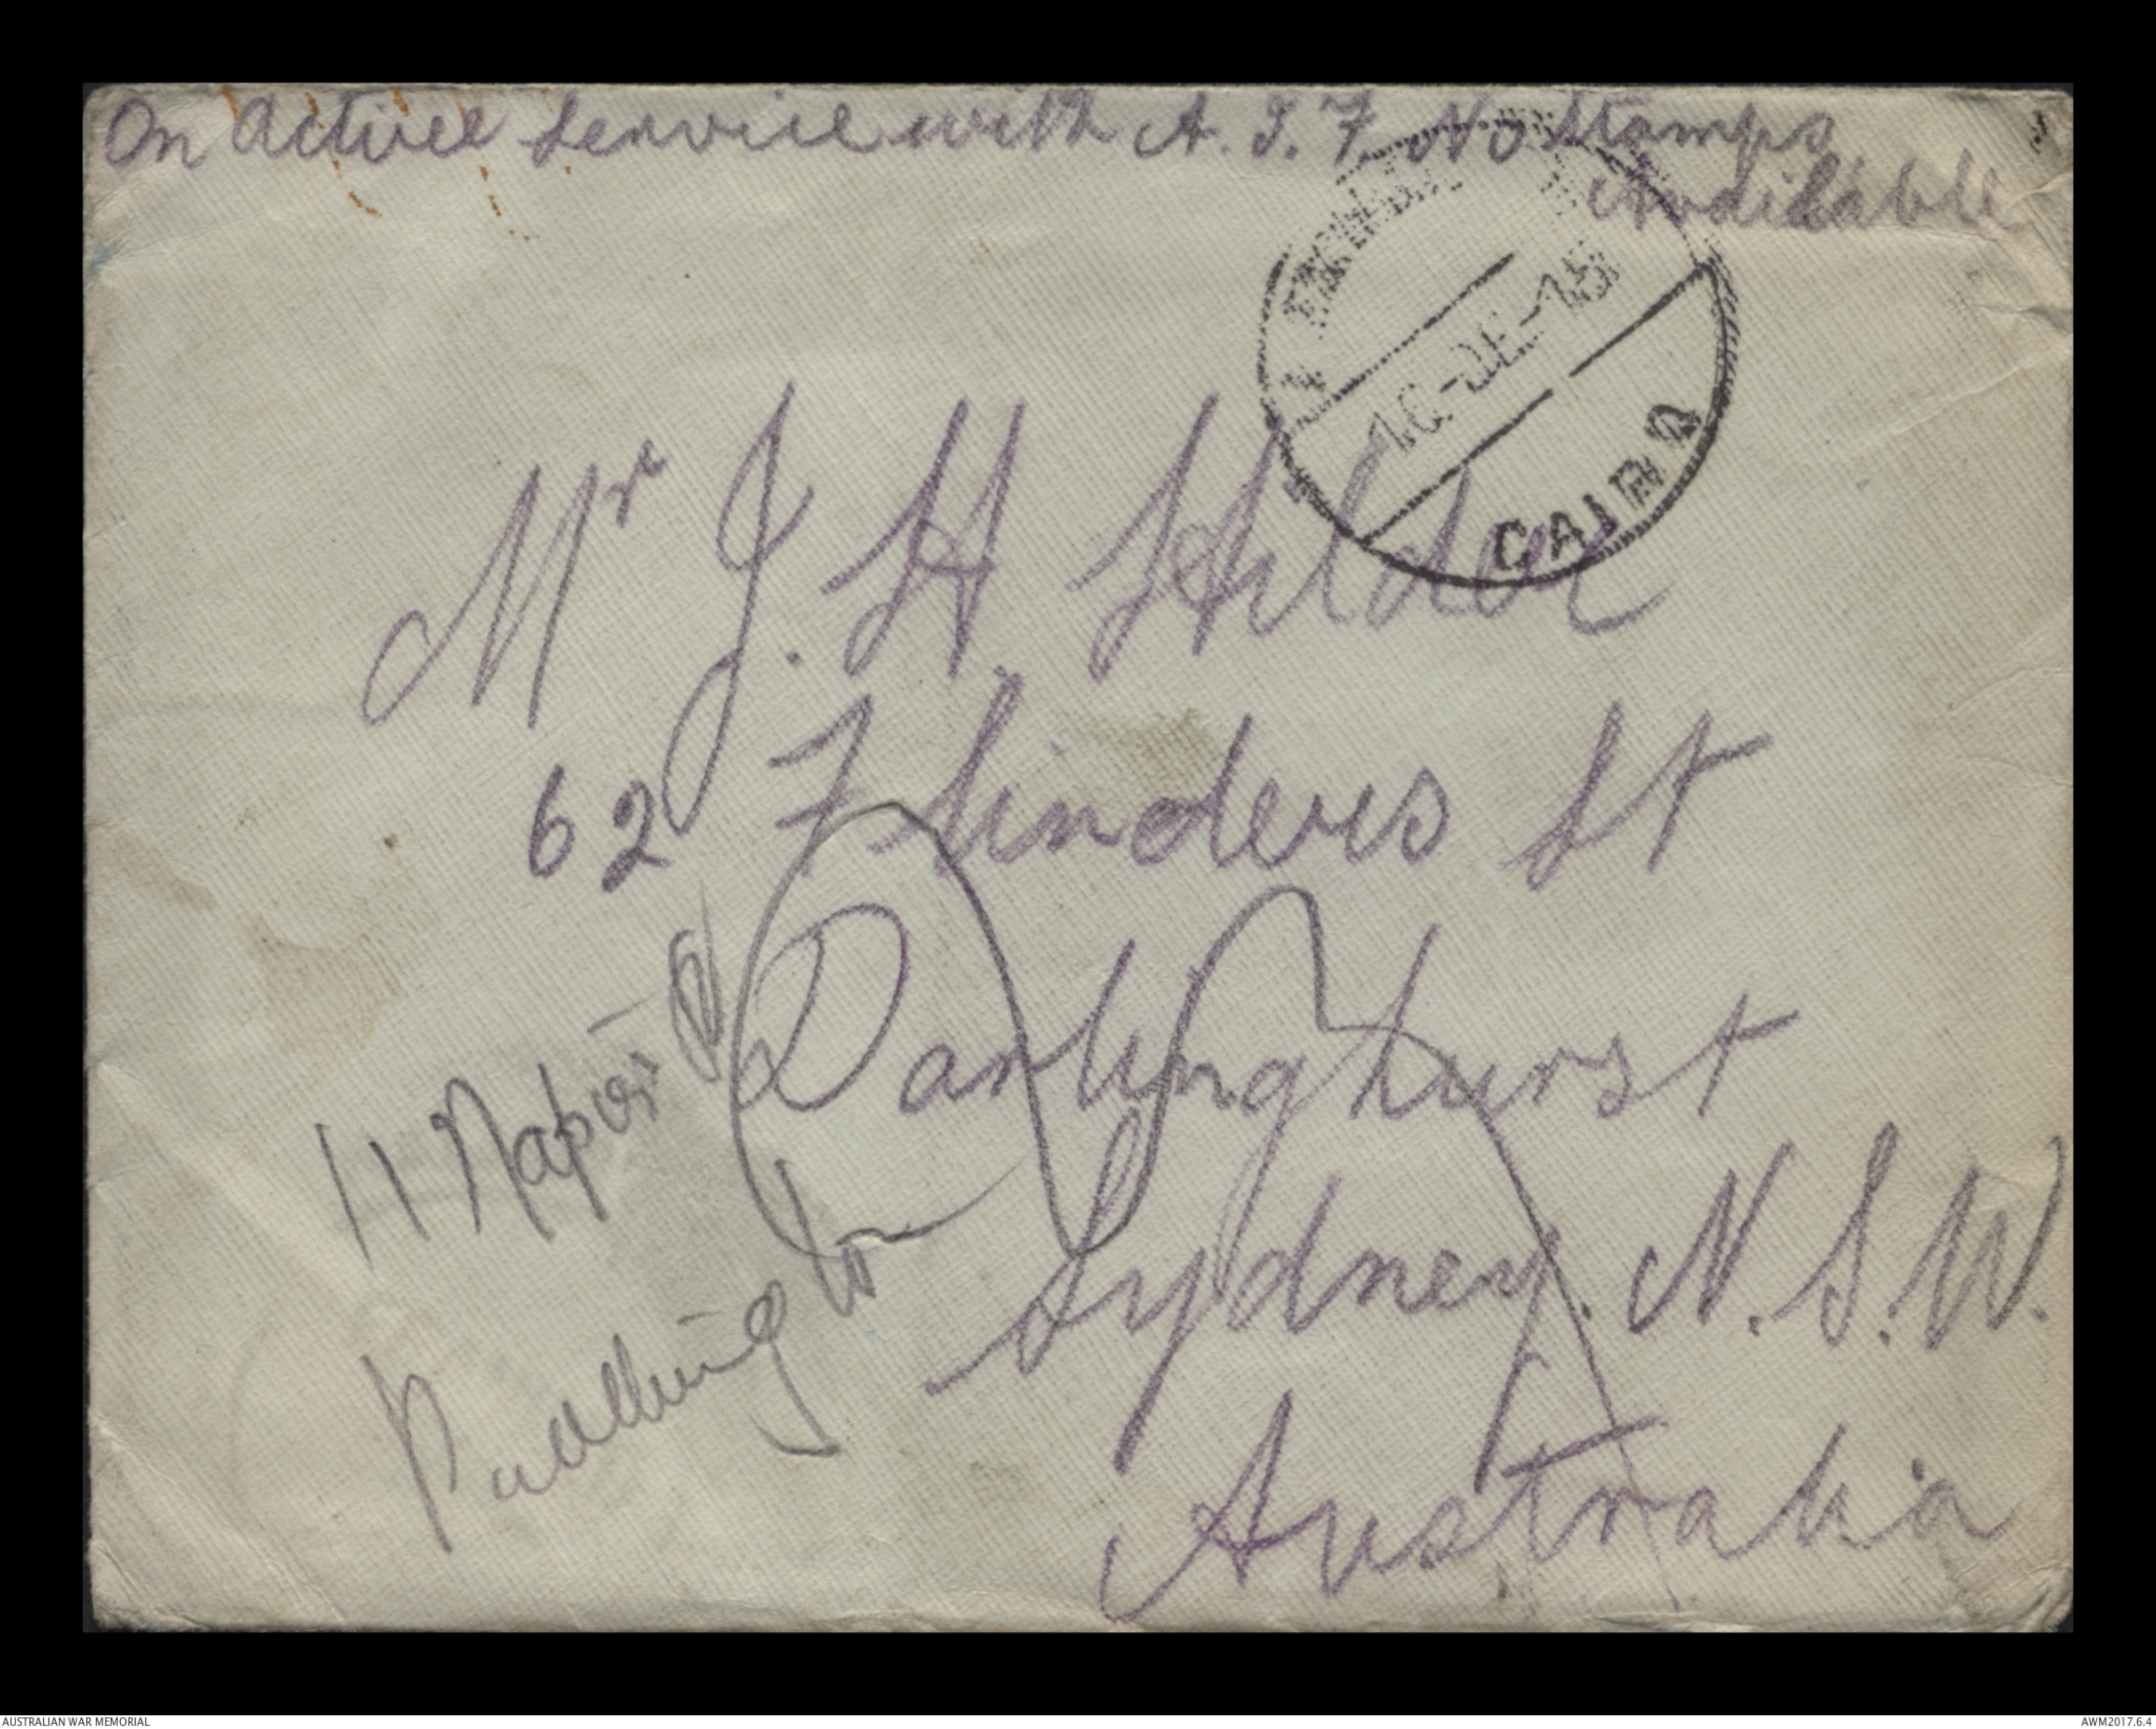 On Active Service with A. I. F. No Stamps
Available
16-DE-15
CAIRO
Mr J. H Hilder
62 Flinders St
Darlinghurst
Sydney. N.S.W.
Australia
11 Napier St
Paddington
AUSTRALIAN WAR MEMORIAL
AWM2017.6.4